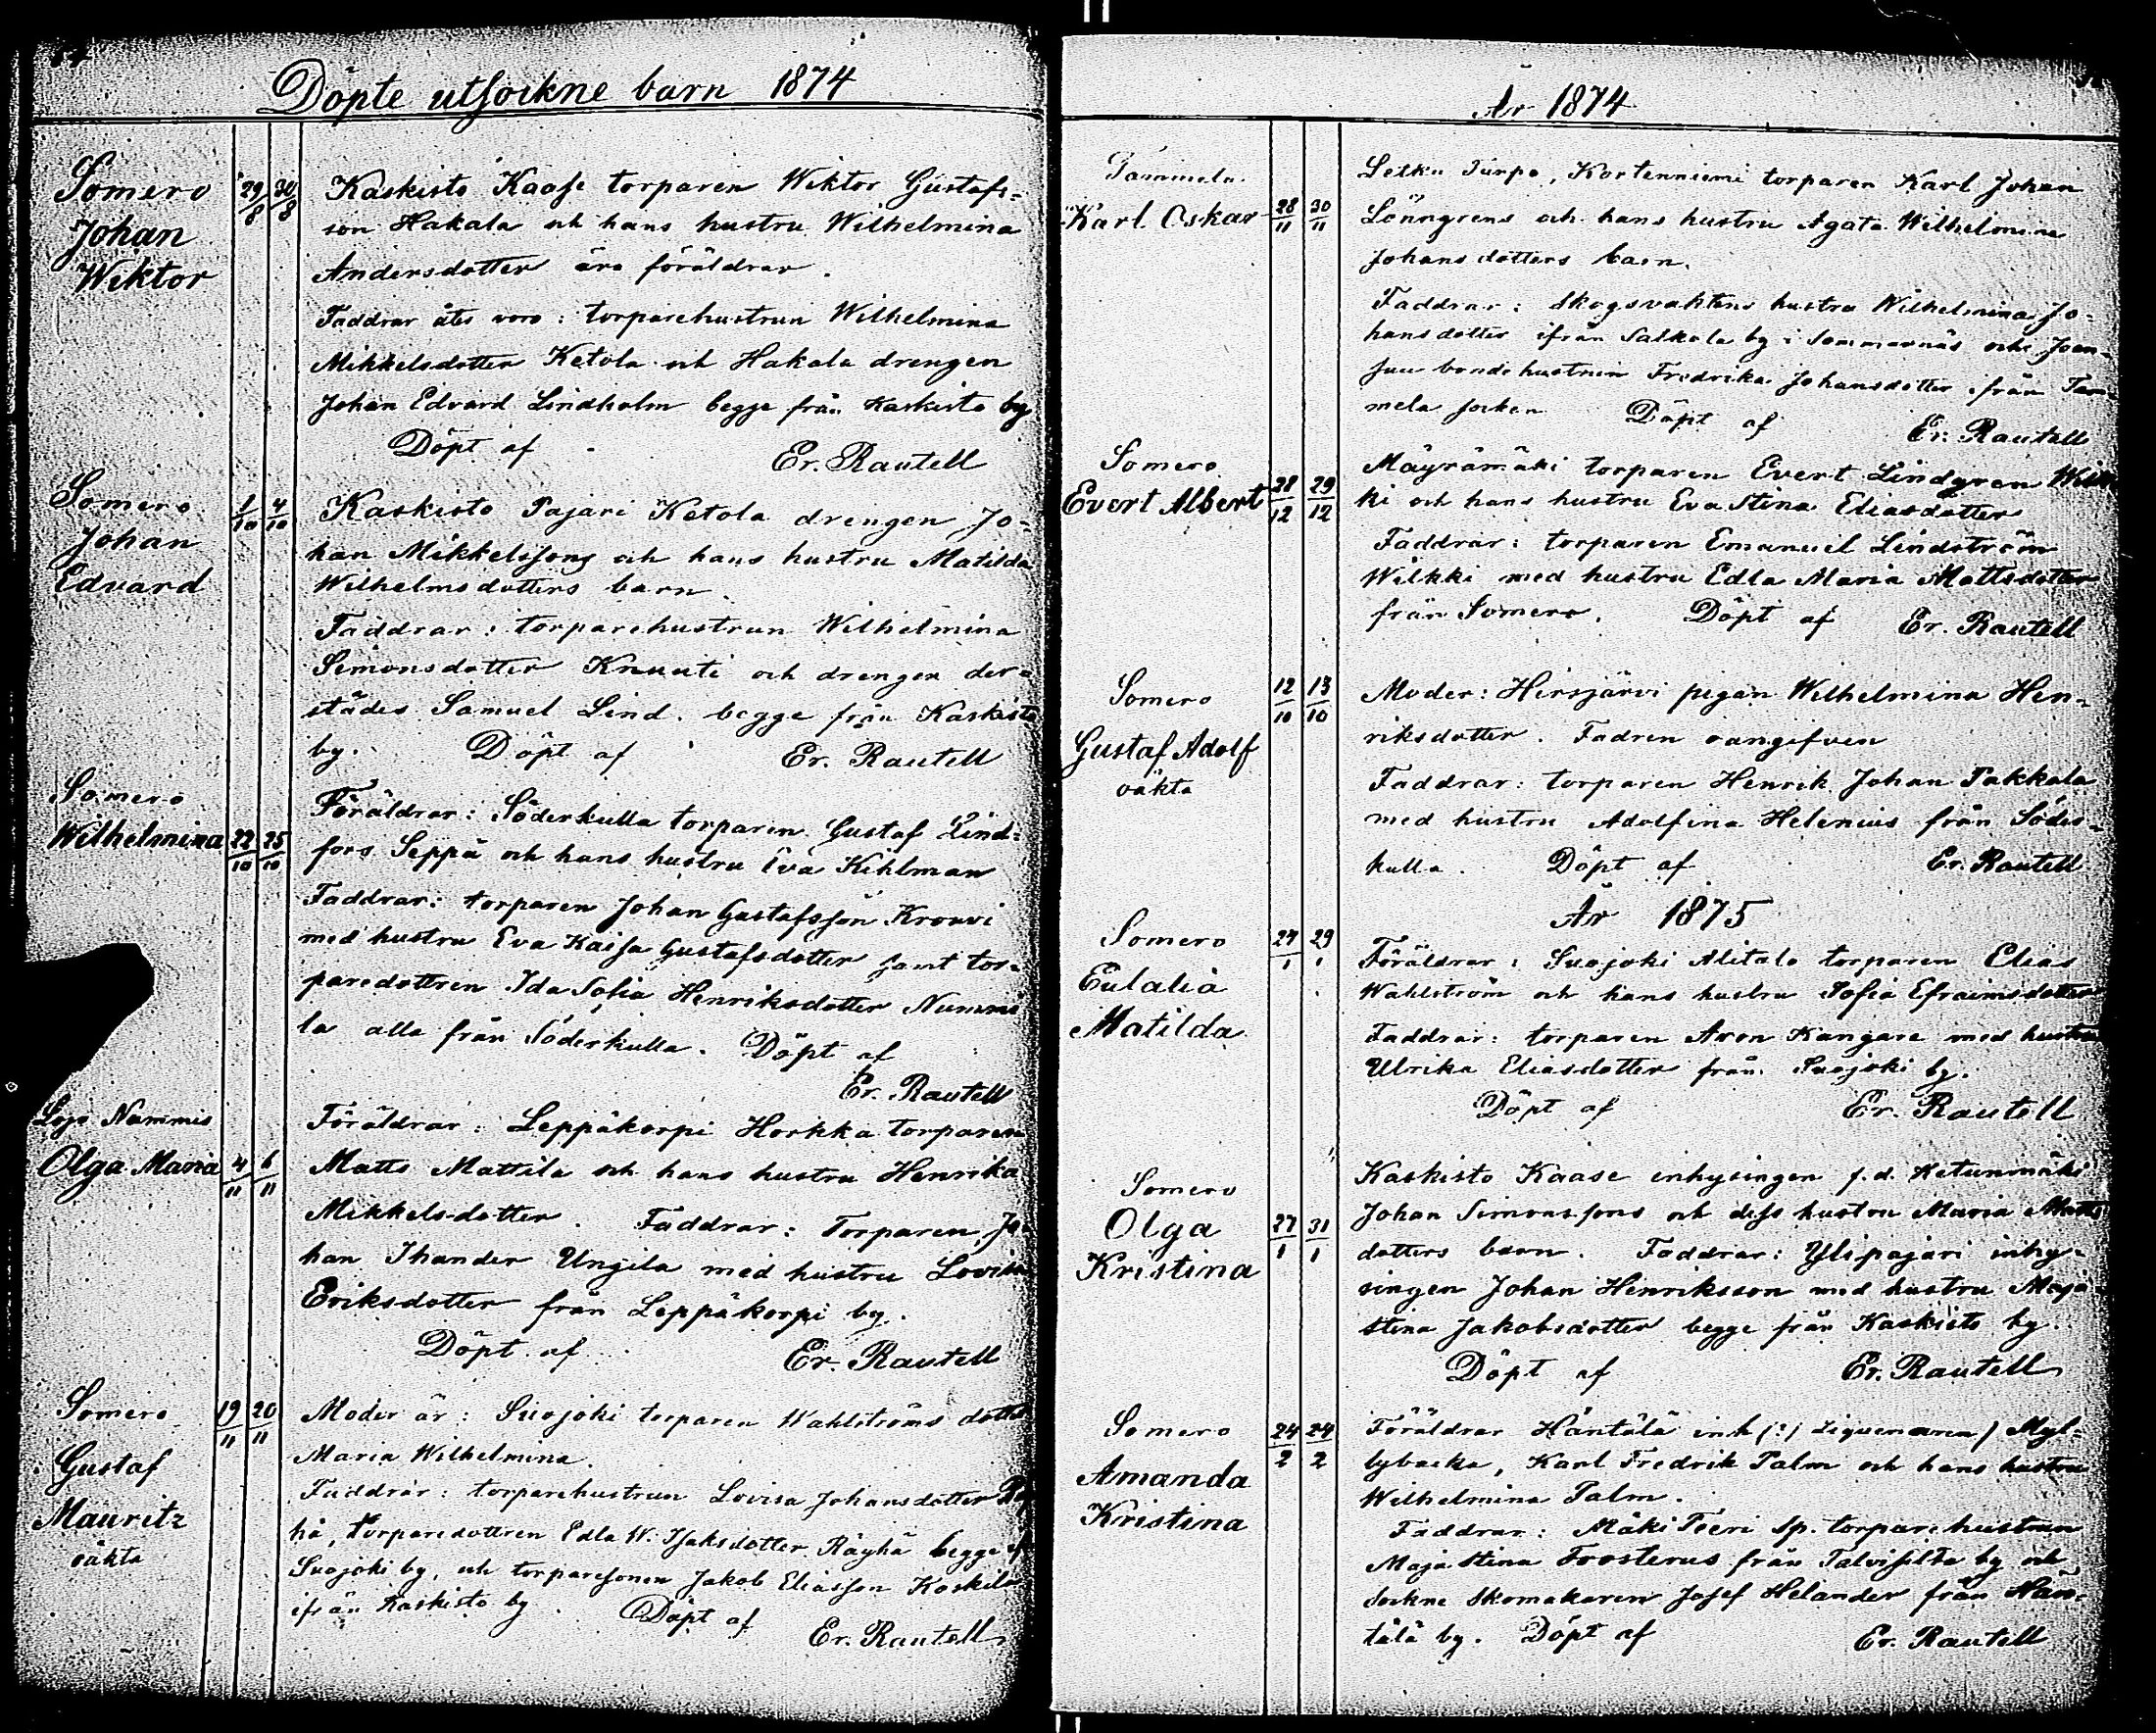 Döpte utsockne barn 1874
Somero 29/8 30/8 Kaskisto Kaase torparen Wiktor Gustafs-
Johan son Hakala och hans hustru Wilhelmina
Wiktor Andersdotter äro föräldrar.
Faddrar åter voro: torparehustrun Wilhelmina
Mikkelsdotter Ketola och Hakala drengen
Johan Edvard Lindholm begge från Kaskisto by
Döpt af Er. Rautell
Somero 1/10 4/10 Kaskisto Pajari Ketola drengen Jo-
Johan han Mikkelssons och hans hustru Matilda
Edvard Wilhelmsdotters barn.
Faddrar: torparehustrun Wilhelmina
Simonsdotter Knuuti och drengen der-
städes Samuel Lind. begge från Kaskisto
by. Döpt af Er. Rautell
Somero Föräldrar: Söderkulla torparen Gustaf Lind-
Wilhelmina 22/10 25/10 fors Seppä och hans hustru Eva Kihlman
Faddrar: torparen Johan Gustafsson Krouvi
med hustru Eva Kaisa Gustafsdotter samt tor-
paredottren Ida Sofia Henriksdotter Nummi
la alla från Söderkulla. Döpt af
Er. Rautell
Lojo Nummis Föräldrar: Leppäkorpi Horkka torparen
Olga Maria 4/11 6/11 Matts Mattila och hans hustru Henrika
Mikkelsdotter. Faddrar: Torparen Jo-
han Ihander Ungila med hustru Lovisa
Eriksdotter från Leppäkorpi by.
Döpt af Er. Rautell
Somero 19/11 20/11 Moder är: Suojoki torparen Wahlströms dotter
Gustaf Maria Wilhelmina.
Mauritz Faddrar: torparehustrun Lovisa Johansdotter
oäkta hä, torparedottren Edla W. Isaksdotter Räyhä begge af
Suojoki by, och torparesonen Jakob Eliasson Koskila
ifrån Kaskisto by. Döpt af Er. Rautell
År 1874
Tammela. Kortenniemi torparen Karl Johan
Karl Oskar 28/11 30/11 Lönngrens och hans hustru Agata Wilhelmina
Johansdotters barn.
Faddrar: Skogsvaktens hustru Wilhelmina Jo-
hansdotter ifrån Salkola by i Sommarnäs och Joen-
suu bondehustrun Fredrika Johansdotter ifrån Tam-
mela socken Döpt af Er. Rautell
Somero Mäyrämäki torparen Evert Lindgren Wilk
Evert Albert 28/12 29/12 ki och hans hustru Eva Stina Eliasdotter
Faddrar: torparen Emanuel Lindström
Wilkki med hustru Edla Maria Mattsdotter
från Somero. Döpt af Er. Rautell
Somero 12/10 13/10 Moder: Hirsjärvi pigan Wilhelmina Hen-
Gustaf Adolf riksdotter. Fadren oangifven
oäkta Faddrar: torparen Henrik Johan Pakkala
med hustru Adolfina Helenius från Söder-
kulla. Döpt af Er. Rautell
År 1875
Somero 27/1 29/1 Föräldrar: Suojoki Alitalo torparen Elias
Eulalia Wahlström och hans hustru Sofia Efraimsdotter
Matilda Faddrar: torparen Aron Kangare med hustru
Ulrika Eliasdotter från Suojoki by.
Döpt af Er. Rautell
Somero Kaskisto Kaase inhysingen f.d. Ketunmäki
Olga 27/1 31/1 Johan Simonssons och dess hustru Maria Matts
Kristina dotters barn. Faddrar: Ylipajari inhy-
singen Johan Henriksson med hustru Maja
Stina Jakobsdotter begge från Kaskisto by.
Döpt af Er. Rautell
Somero 24/2 24/2 Föräldrar Häntälä inh (:) Myl-
Amanda lybacka, Karl Fredrik Palm och hans hustru
Kristina Wilhelmina Palm.
Faddrar: Mäki Teeri Sp. torparehustrun
Maja Stina Frosterus från Talvisilta by och
sockne skomakaren Josef Helander från Hän-
tälä by. Döpt af Er. Rautell